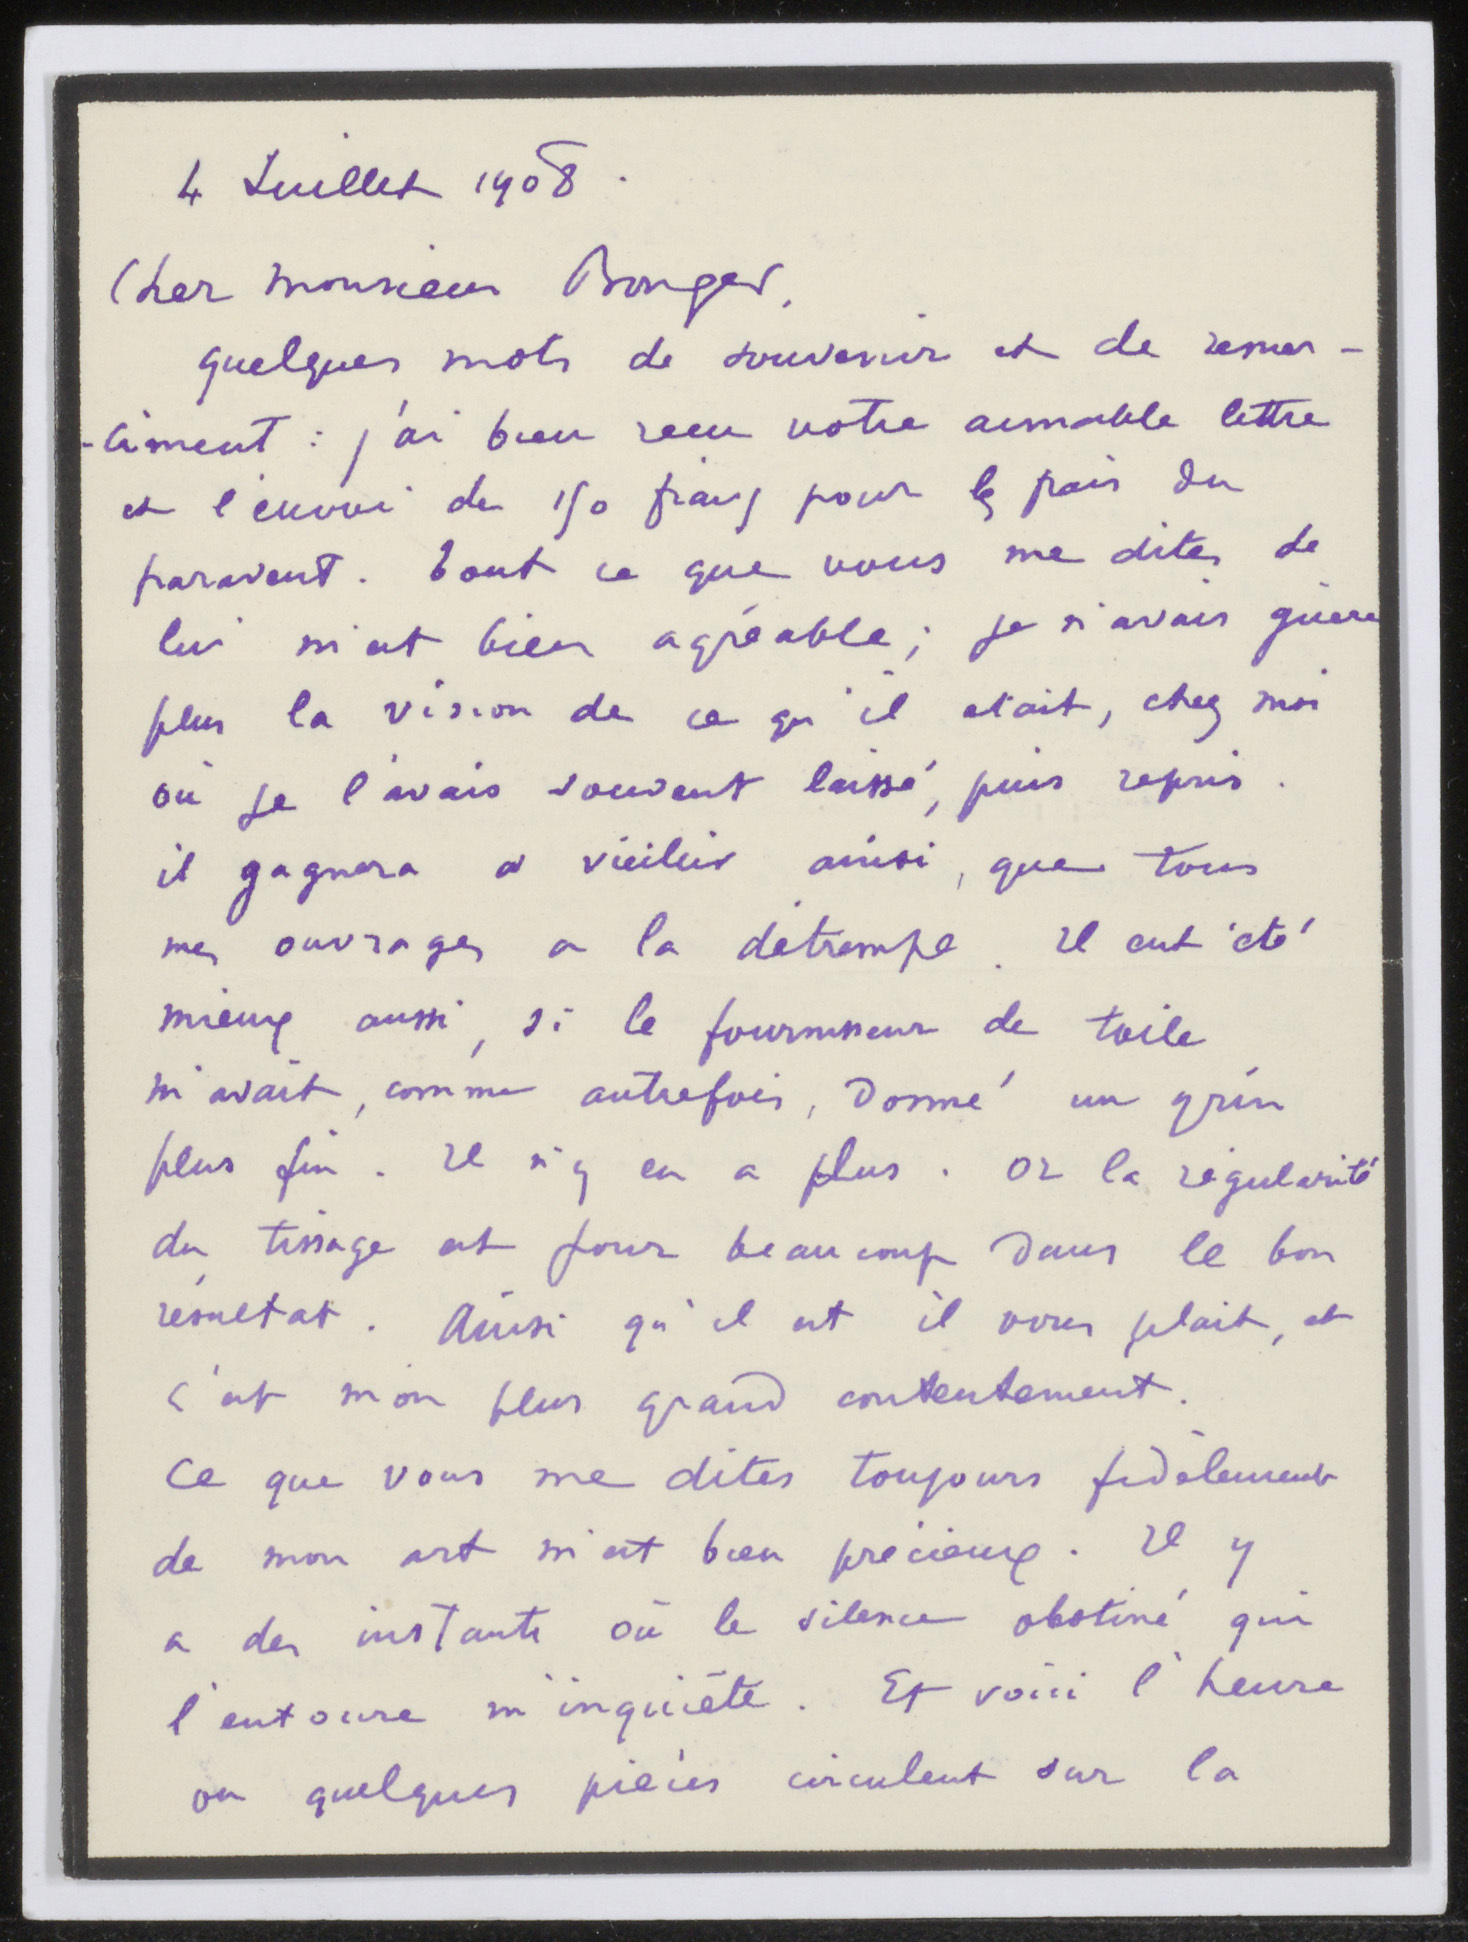 4 Juillet 1908.
Cher Monsieur Bonger,
quelques mots de souvenir et de remer-
-ciment : j'ai bien recu votre aimable lettre
et l'envoi de 150 francs pour les frais du
paravent. Tout ce que vous me dites de
lui m'est bien agréable ; je n'avais guère
plus la vision de ce qu'il etait, chez moi
où je l'avais souvent laissé, puis repris.
il gagnera a vieilir ainsi, que tous
mes ouvrages a la détrempe. Il eut été
mieux aussi, si le fournisseur de toile
m'avait, comme autrefois, donné un grin
plus fin. Il n'y en a plus. Or la régularité
du tissage est pour beaucoup dans le bon
résultat. Ainsi qu'il est il vous plait, et
c'est mon plus grand contentement.
Ce que vous me dites toujours fidèlement
de mon art m'est bien précieux. Il y
a des instants où le silence obstiné qui
l'entoure m'inquiète. Et voici l'heure
ou quelques pièces circulent sur la